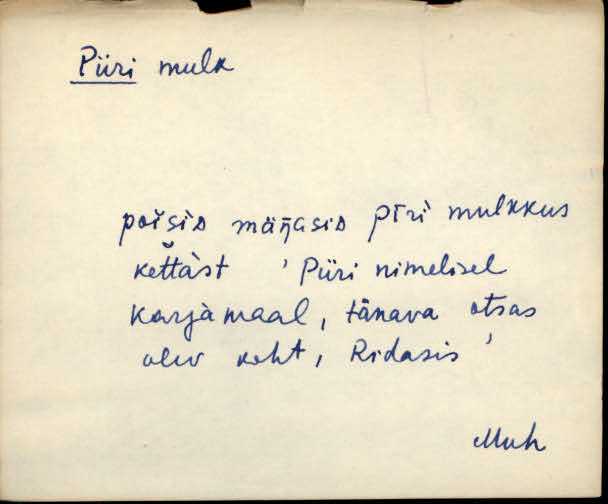 Piiri mulk
poĭsiᴅ mäŋ̄asiᴅ pīri mulkkus
kettàst ' Piiri nimelisel
karjàmaal, tänava otsas
olev koht, Ridasis '
Muh